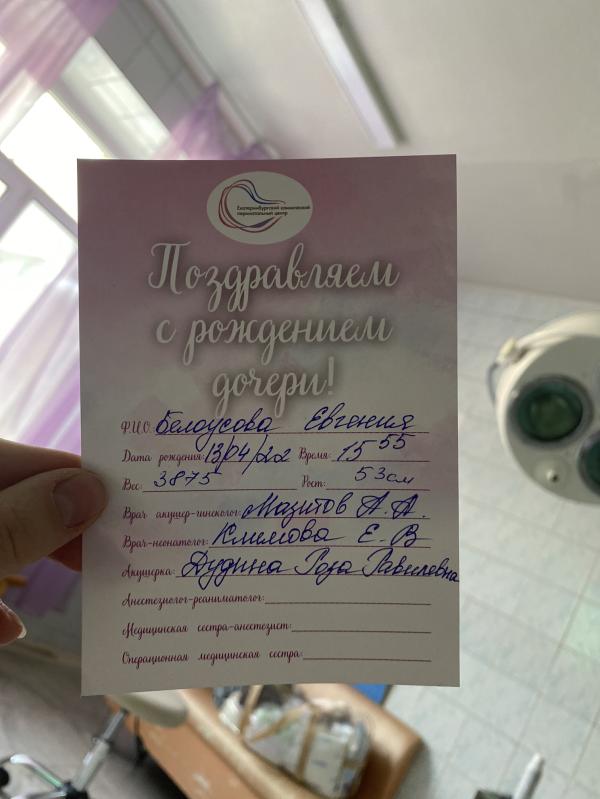 Екатеринбургский клинический
перинатальный центр
Поздравляем
с рождением
дочери!
Ф.И.О. Белоусова Евгения
Дата рождения: 13/04/22 Время: 15 55
Вес: 3875 Рост: 53см
Врач акушер-гинеколог: Мазитов А.А.
Врач-неонатолог: Климова Е.В
Акушерка: Дудина Роза Равилевна
Анестезиолог-реаниматолог:
Медицинская сестра-анестезист:
Операционная медицинская сестра: